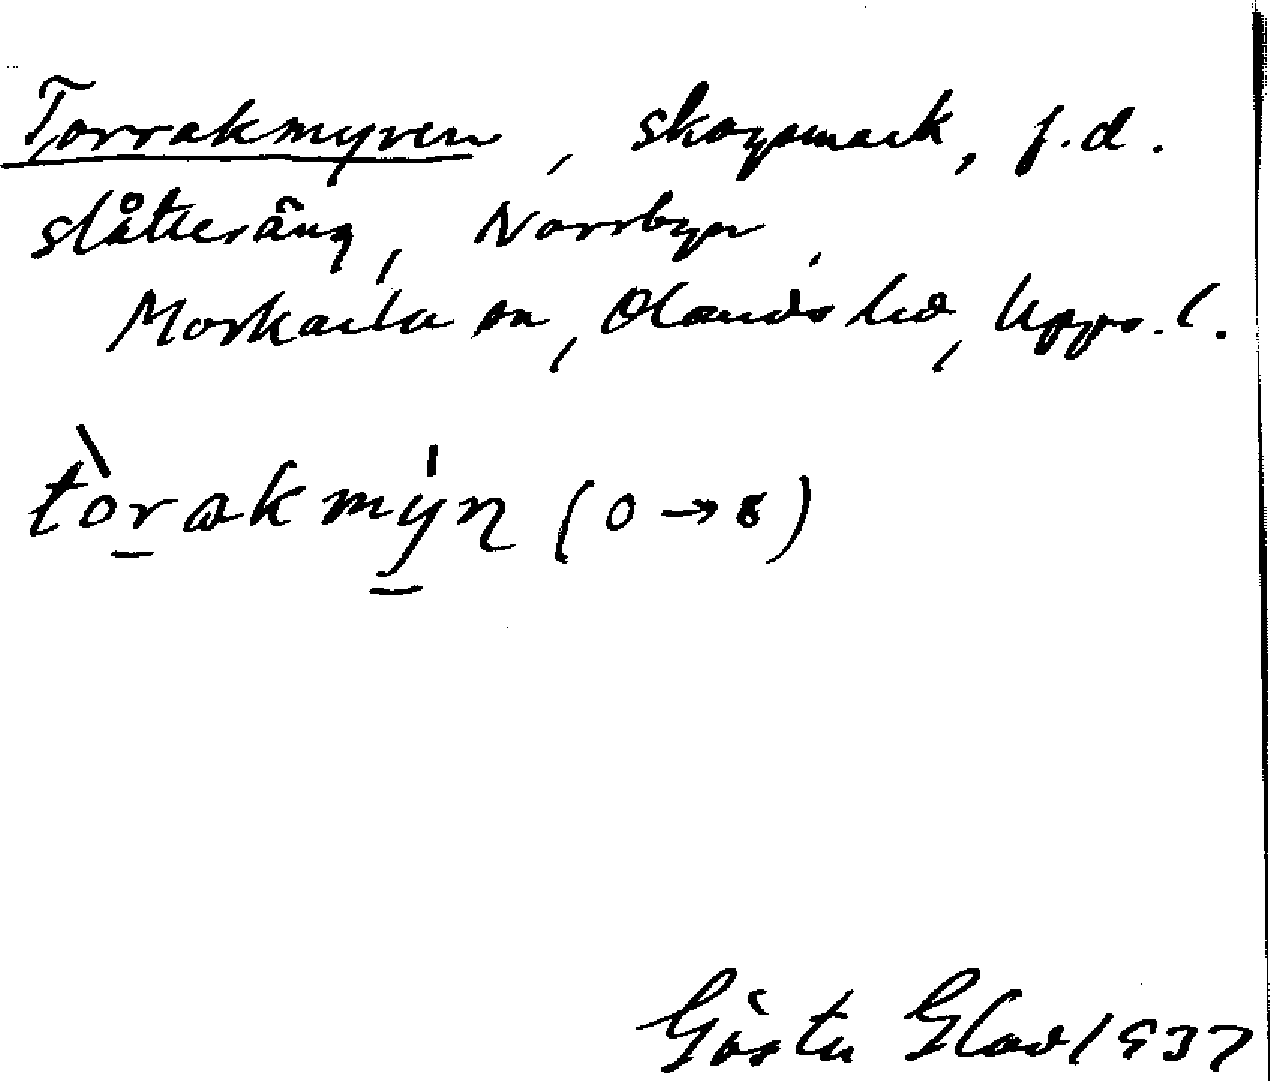 Torrakmyren, skogsmark, f.d.
slåtteräng, Norrbyn,
Morkarla sn, Olands hd, Upps. l.
tòrakmýn (o → ɞ)
Gösta Glad 1937